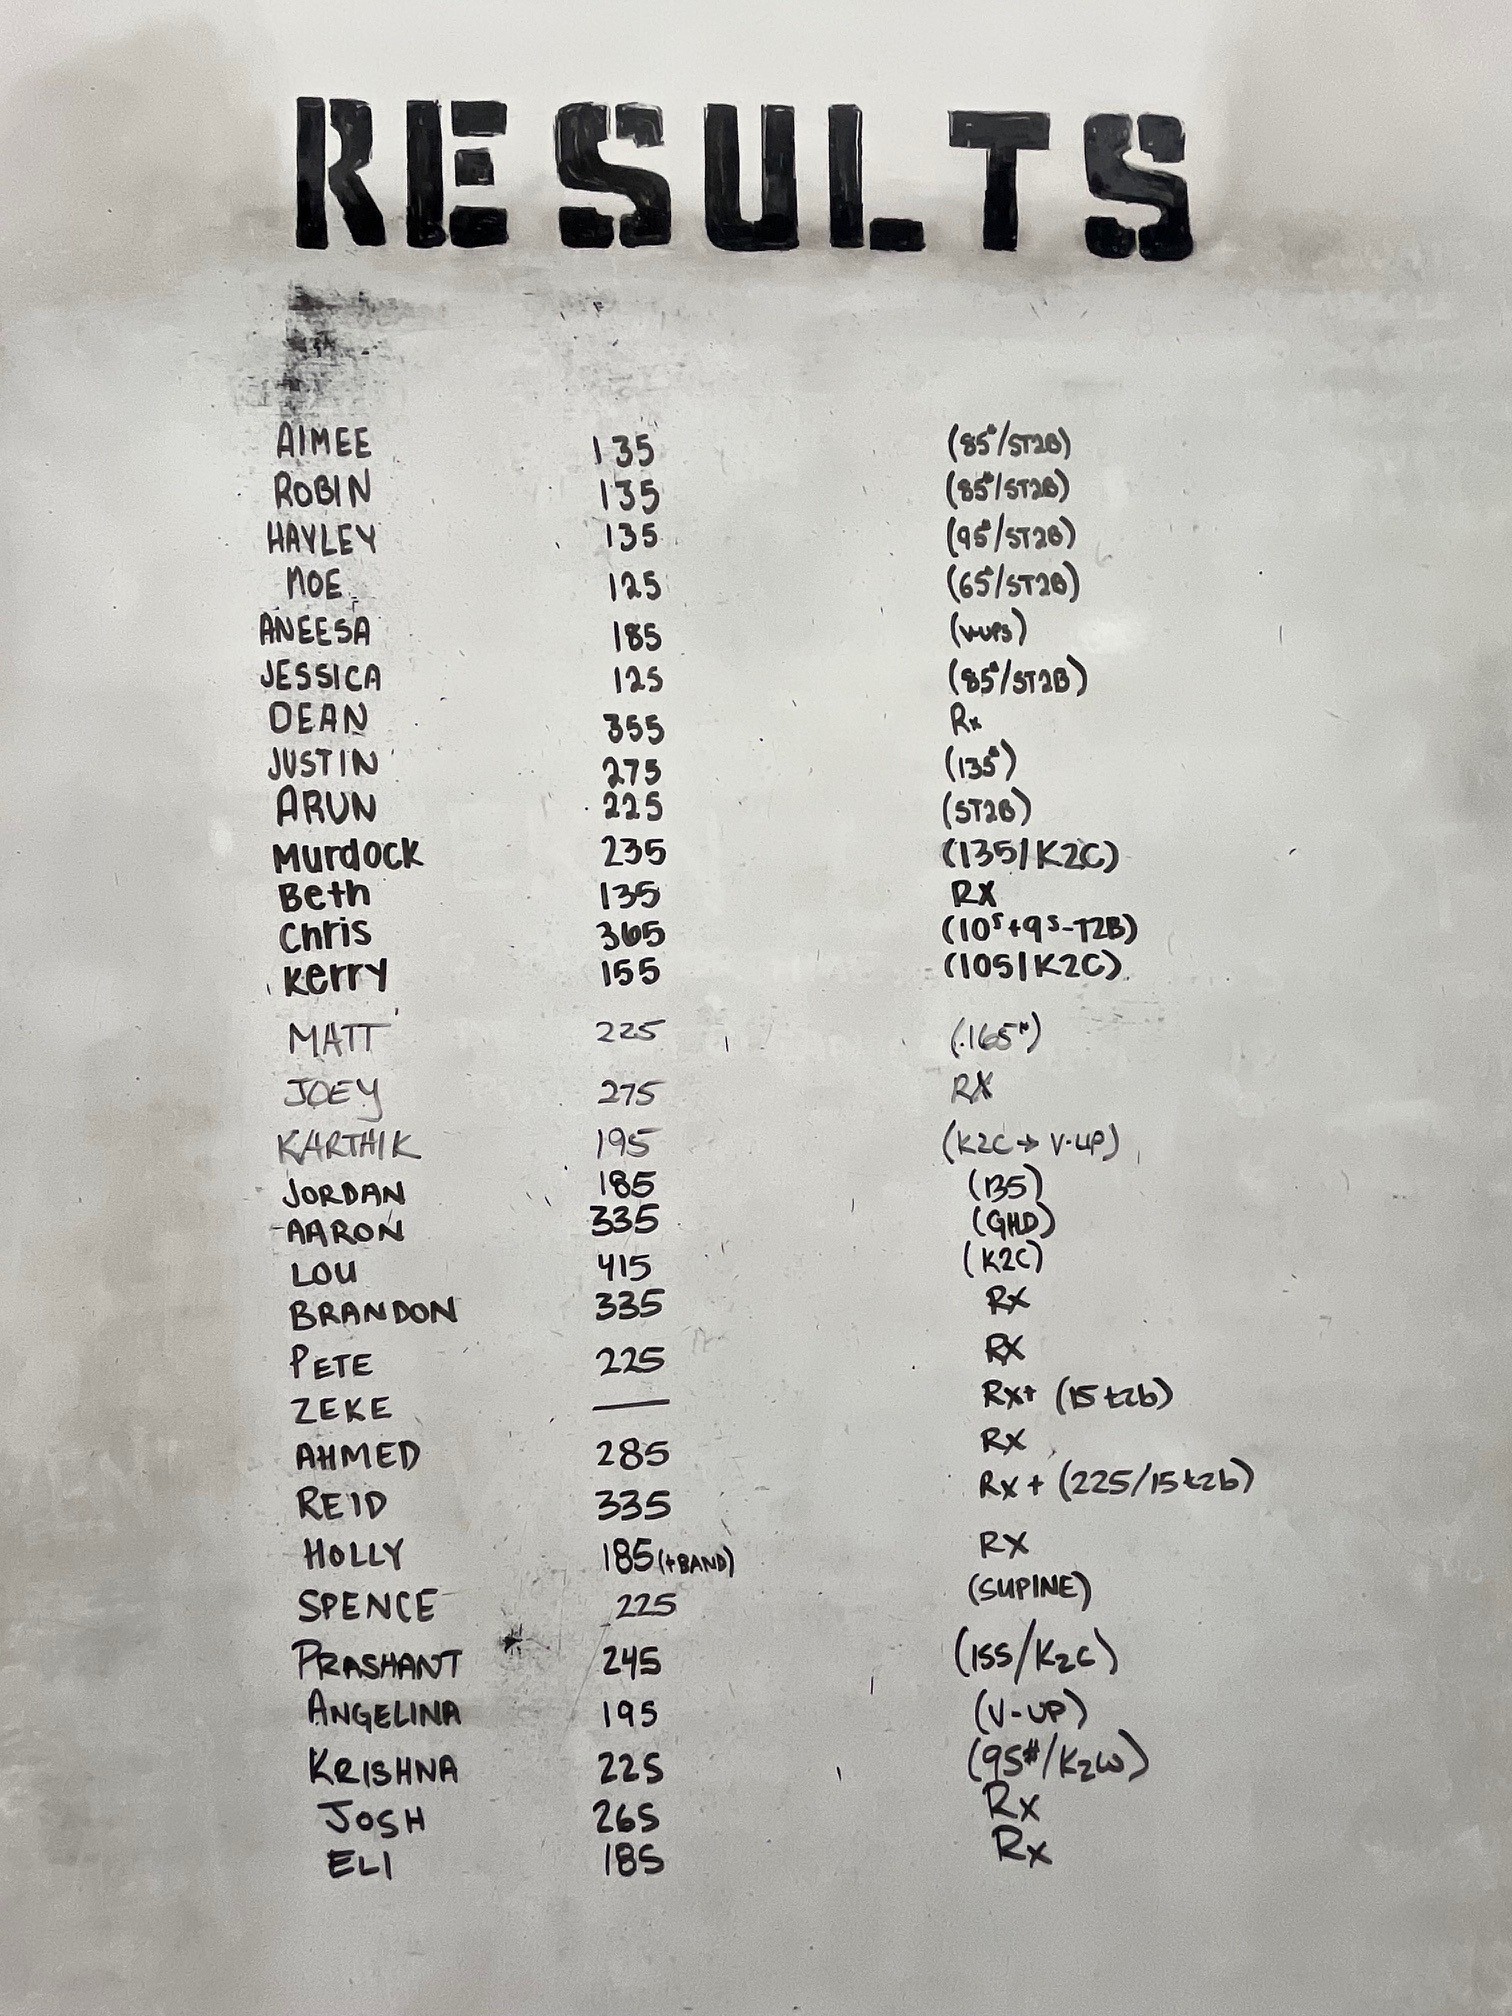 RESULTS
AIMEE 135 (85#/ST2B)
ROBIN 135 (85#/ST2B)
HAYLEY 135 (95#/ST2B)
MOE 125 (65#/ST2B)
ANEESA 185 (V-UPS)
JESSICA 125 (85#/ST2B)
DEAN 355 Rx
JUSTIN 275 (135#)
ARUN 225 (ST2B)
Murdock 235 (135/K2C)
Beth 135 RX
Chris 365 (10s+9s-T2B)
Kerry 155 (105/K2C)
MATT 225 (165#)
JOEY 275 RX
KARTHIK 195 (K2C → V-UP)
JORDAN 185 (135)
AARON 335 (GHD)
LOU 415 (K2C)
BRANDON 335 RX
PETE 225 RX
ZEKE — Rx+ (15 t2b)
AHMED 285 RX
REID 335 Rx + (225/15 t2b)
HOLLY 185 (+BAND) RX
SPENCE 225 (SUPINE)
PRASHANT 245 (155/K2C)
ANGELINA 195 (V-UP)
KRISHNA 225 (95#/K2W)
JOSH 265 Rx
ELI 185 Rx